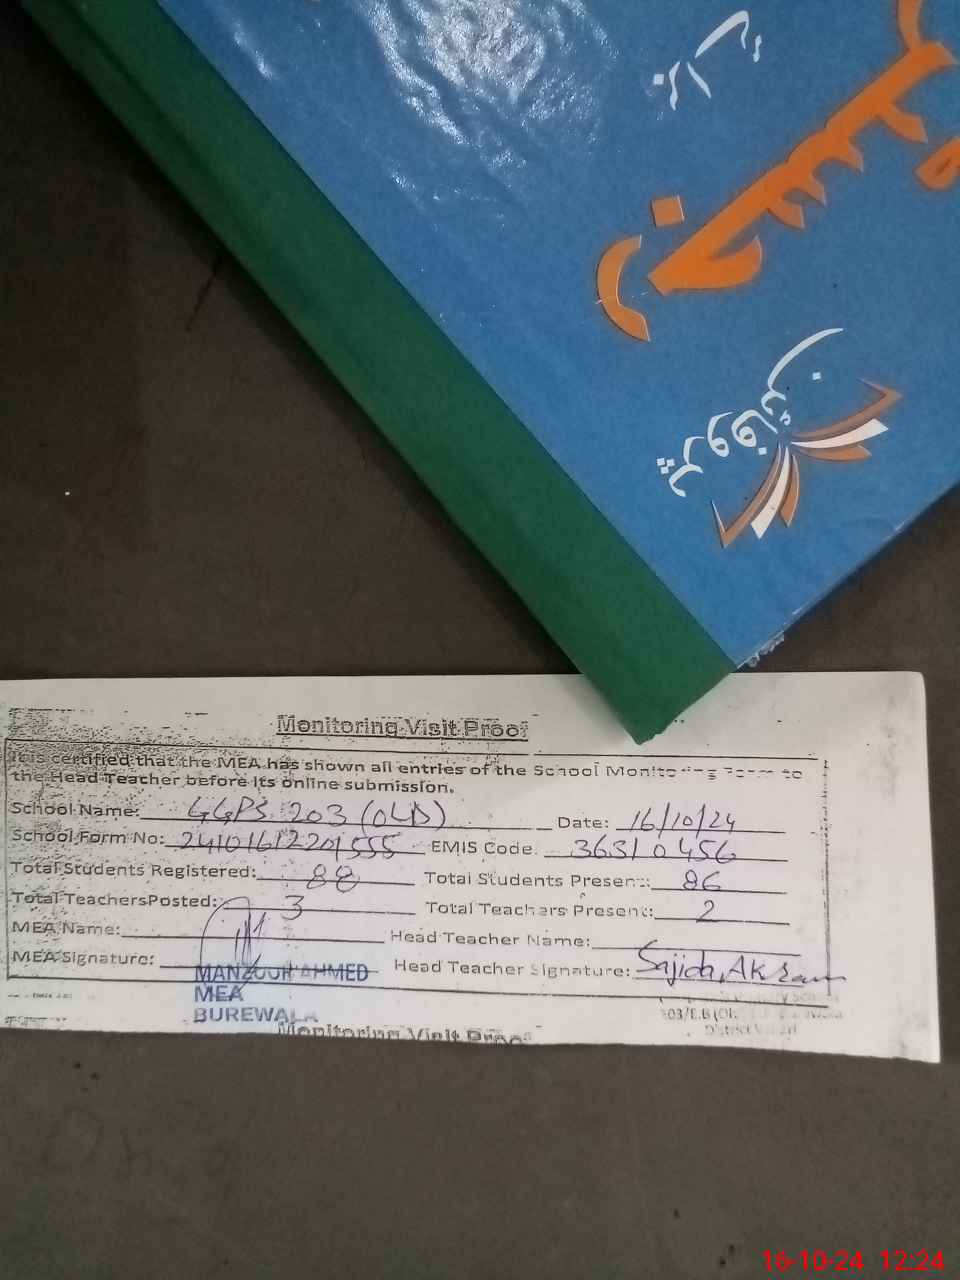 برائے
رجسٹر
پروفائن
Monitoring Visit Proof
It is certified that the MEA has shown all entries of the School Monitoring Form to
the Head Teacher before its online submission.
School Name: GGPS 203 (OLD) Date: 16/10/24
School Form No: EMIS Code. 36310456
Total Students Registered: 88 Total Students Present: 86
Total TeachersPosted: 3 Total Teachers Present: 2
MEA Name: Head Teacher Name:
MEA Signature: Head Teacher Signature: Sajida Akram
MANZOOR AHMED
MEA
BUREWALA
203/E.B
District
Monitoring Visit Proof
16-10-24 12:24